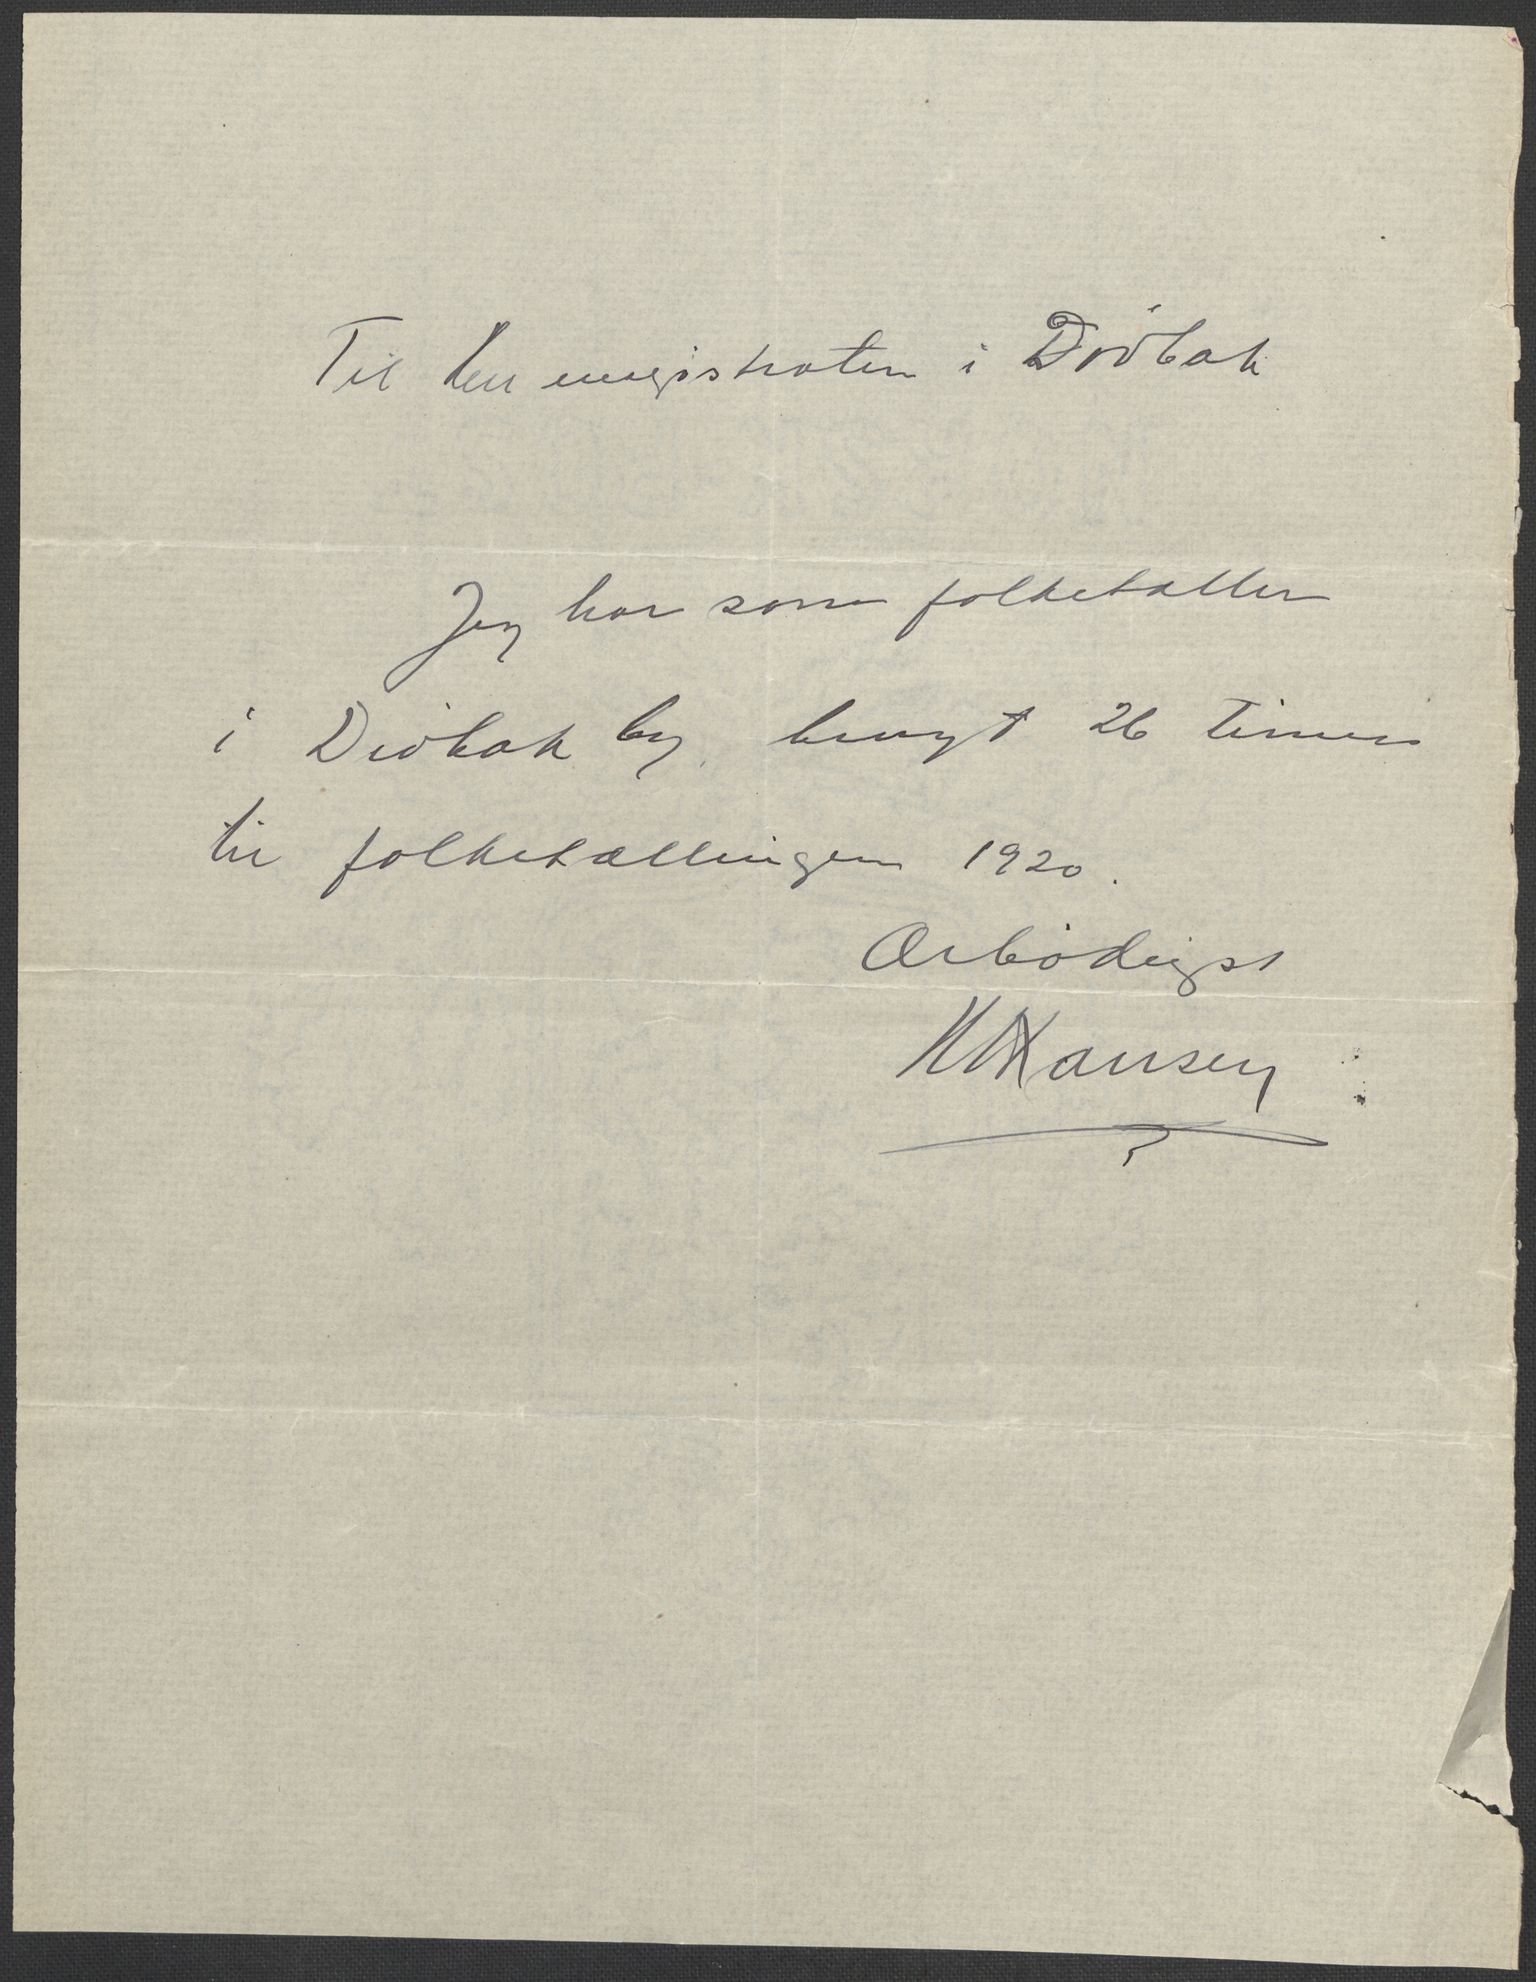 Til Herr magistraten i Dröbak
Jeg har som folketæller
i Dröbak by brugt 26 timer
til folketællingen 1920.
Ærbödigst
Hansen